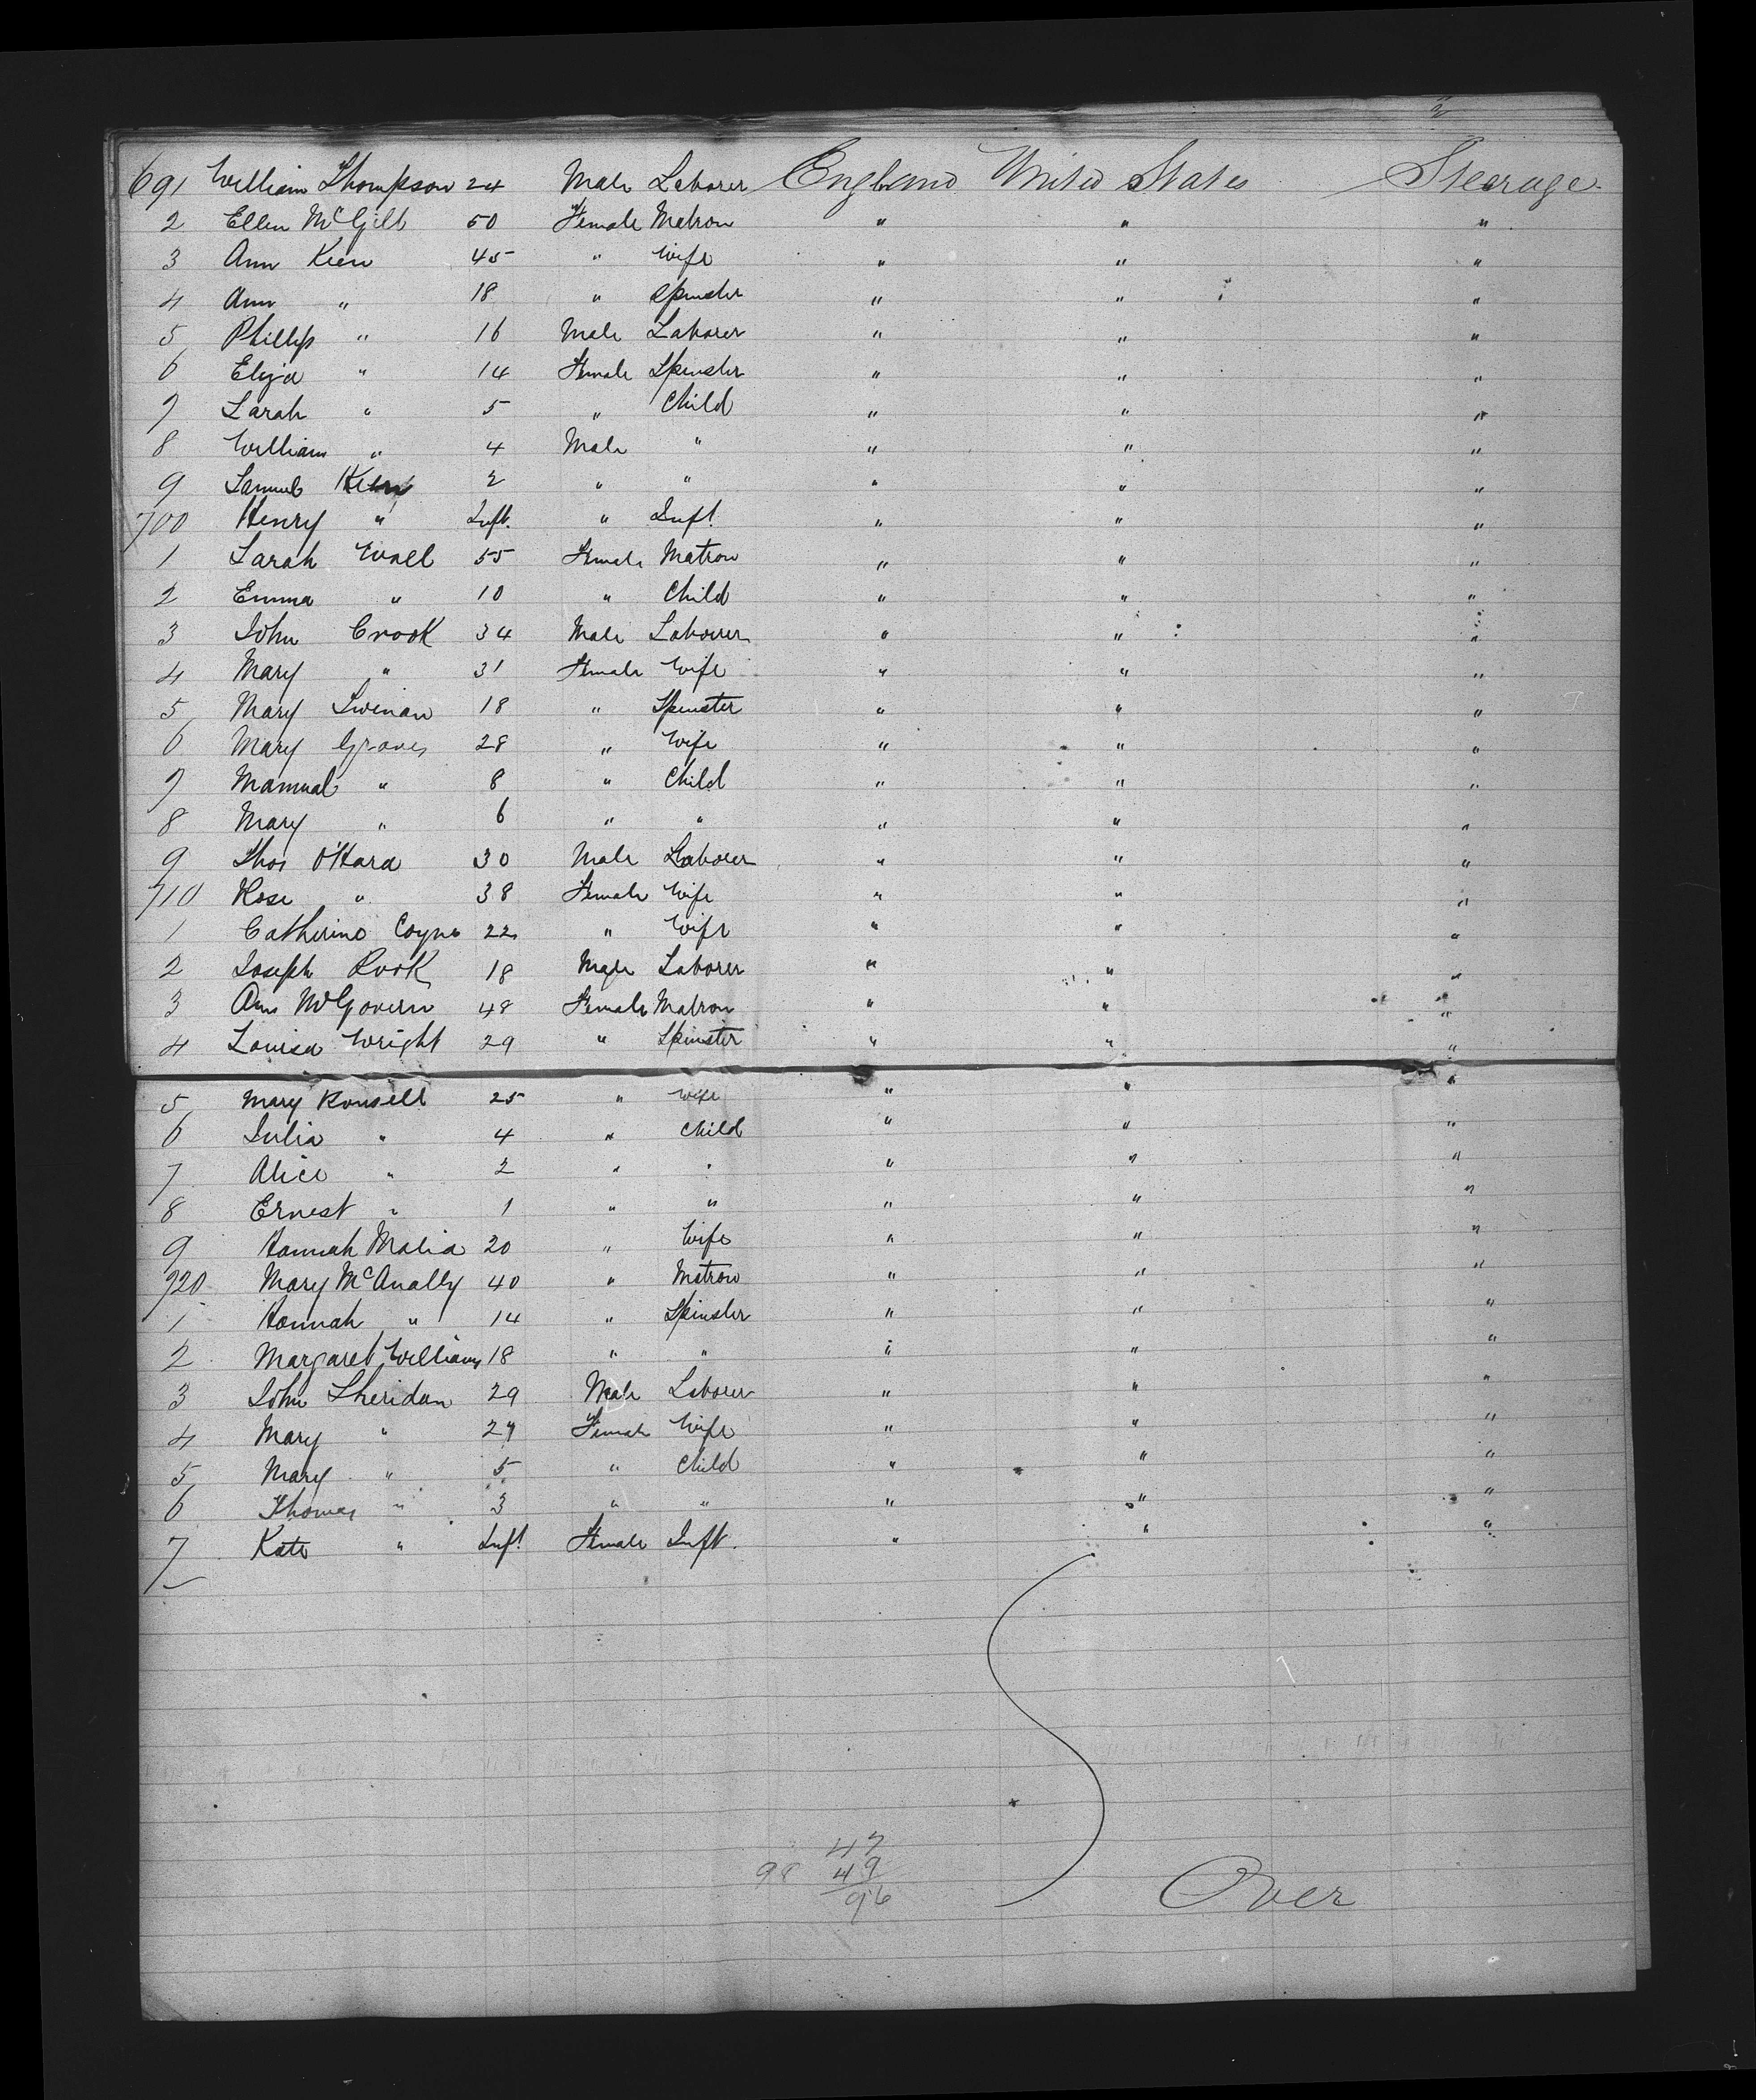 691 William Thompson 24 Male Laborer England United States Steerage
2 Ellen McGill 50 Female Matron " " "
3 Ann Keen 45 " Wife " " "
4 Ann " 18 " Spinster " " "
5 Phillip " 16 Male Laborer " " "
6 Eliza " 14 Female Spinster " " "
7 Sarah " 5 " Child " " "
8 William " 4 Male " " " "
9 Samuel Keen 2 " " " " "
700 Henry " Inft. " Inft. " " "
1 Sarah Wall 55 Female Matron " " "
2 Emma " 10 " Child " " "
3 John Crook 34 Male Laborer " " "
4 Mary " 31 Female Wife " " "
5 Mary 18 " Spinster " " "
6 Mary Graves 28 " Wife " " "
7 " 8 " Child " " "
8 Mary " 6 " " " " "
9 Thos O'Hara 30 Male Laborer " " "
710 Rose " 38 Female Wife " " "
1 Catherine Coyne 22 " Wife " " "
2 Joseph Rook 18 Male Laborer " " "
3 Ann McGovern 48 Female Matron " " "
4 Louisa Wright 29 " Spinster " " "
5 Mary 25 " Wife " " "
6 Julia " 4 " Child " " "
7 Alice " 2 " " " " "
8 Ernest " 1 " " " " "
9 Hannah Malia 20 " Wife " " "
720 Mary McAnally 40 " Matron " " "
1 Hannah " 14 " Spinster " " "
2 Margaret Williams 18 " " " " "
3 John Sheridan 29 Male Laborer " " "
4 Mary " 29 Female Wife " " "
5 Mary " 5 " Child " " "
6 Thomas " 3 " " " " "
7 Kate " Inft. Female Inft. " " "
47
98 49
96
Over